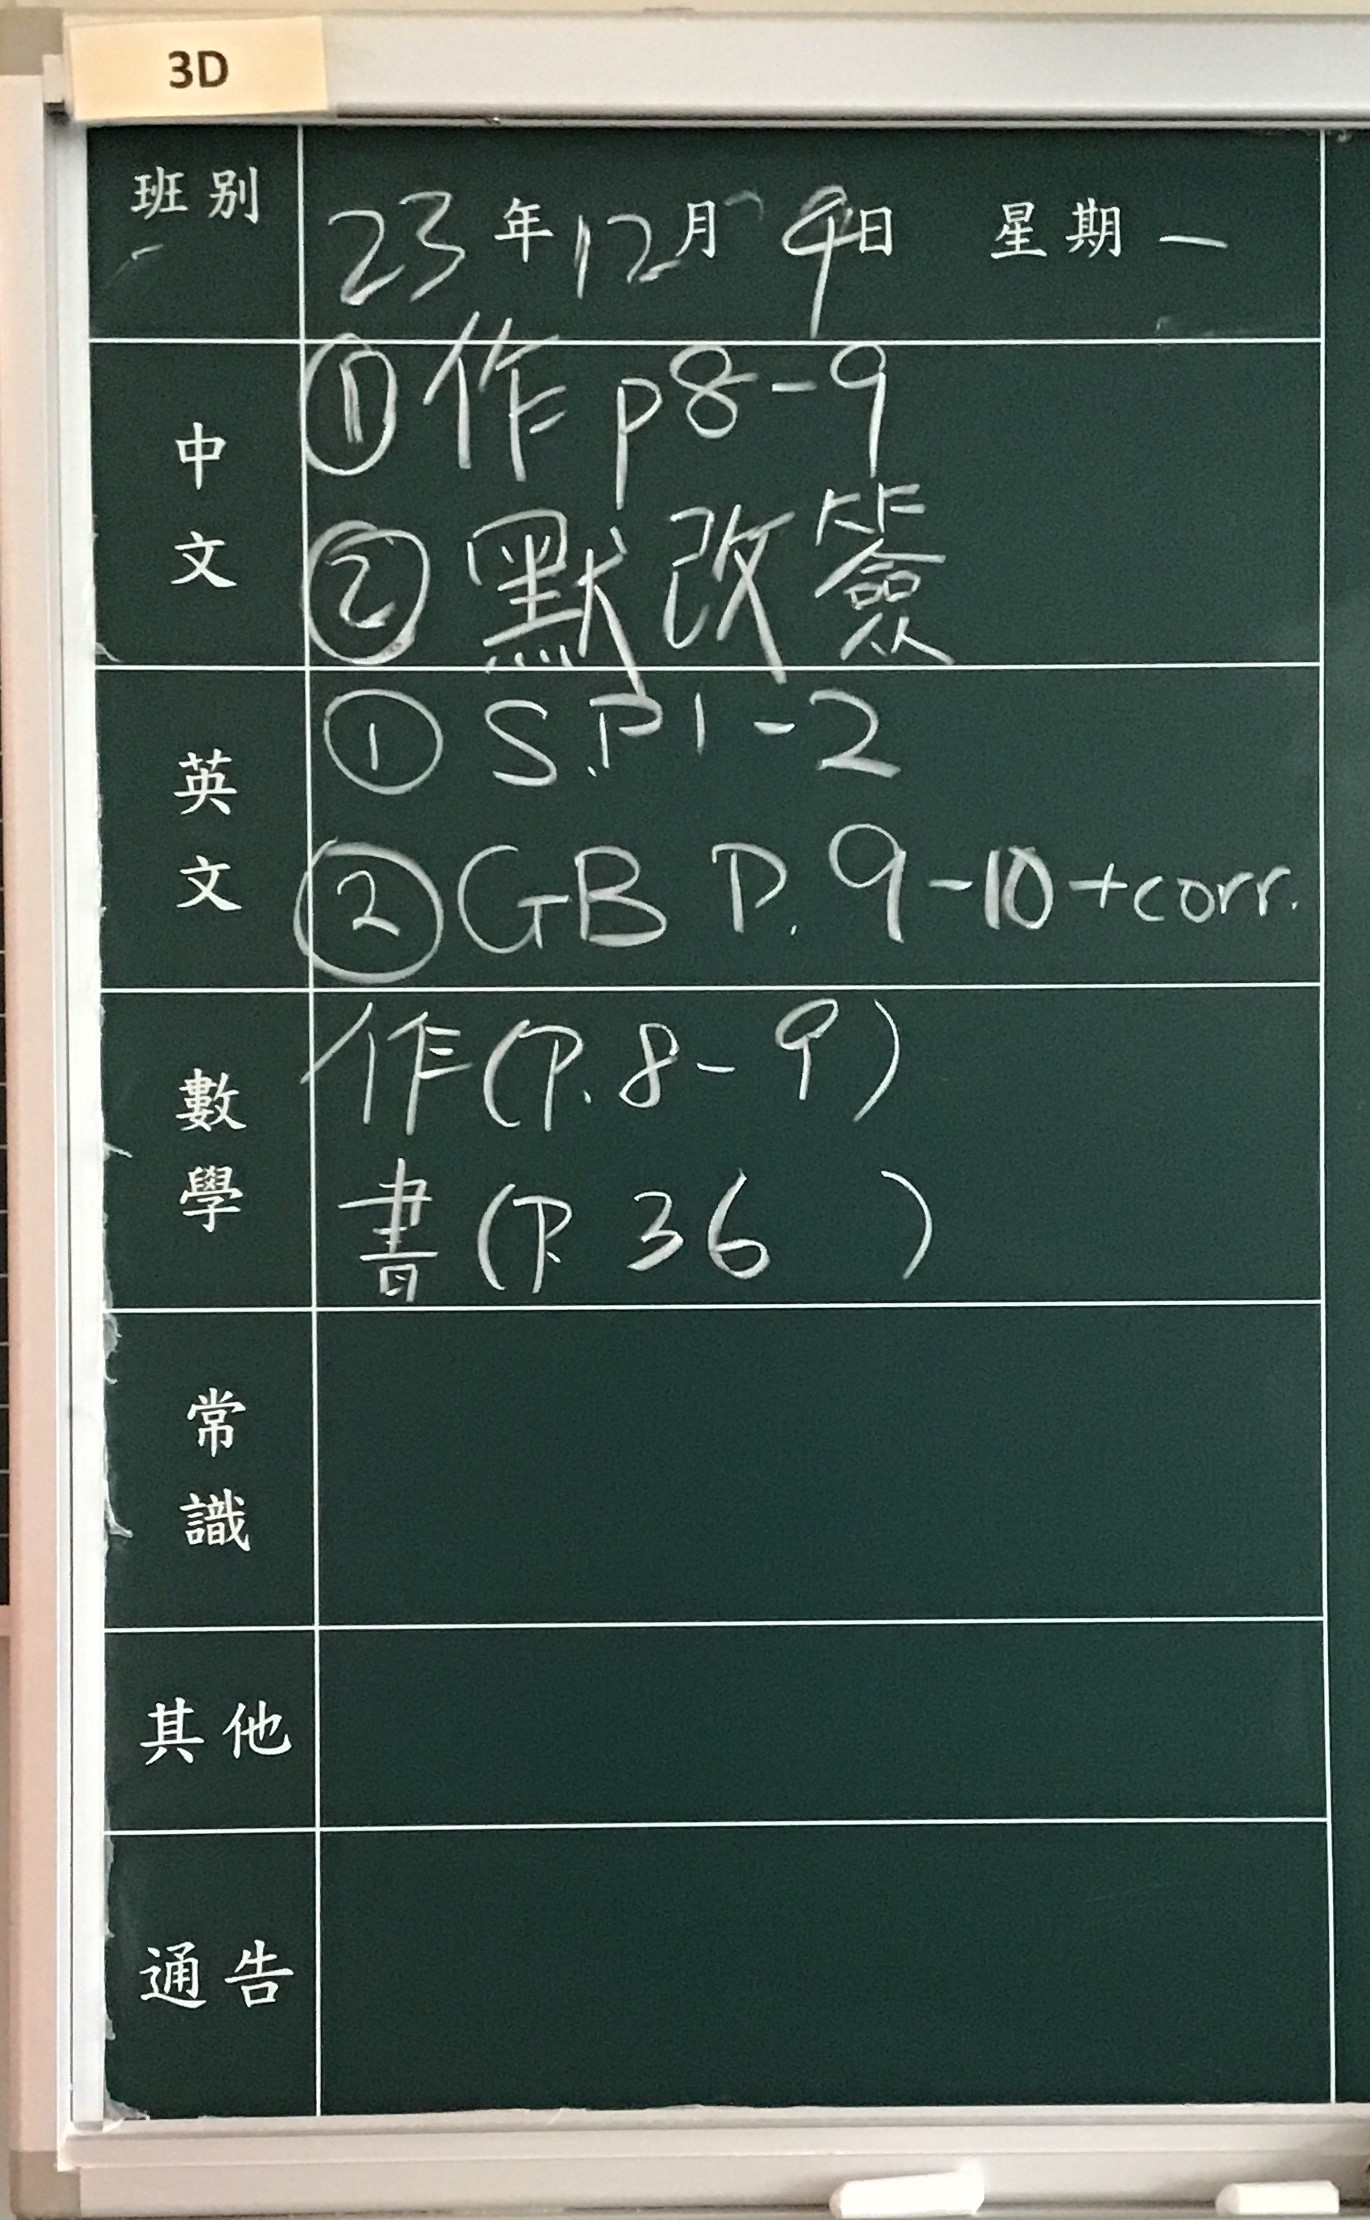 3D
班别 23年12月4日 星期一
中文 ① 作 p8-9
② 默改簽
英文 ① S.P1-2
② GB P.9-10+corr.
數學 作(P.8-9)
書(P.36 )
常識
其他
通告